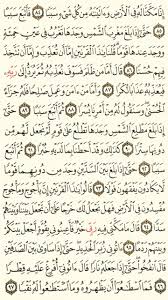 إِنَّا مَكَّنَّا لَهُۥ فِى ٱلْأَرْضِ وَءَاتَيْنَٰهُ مِن كُلِّ شَىْءٍ سَبَبًا ٨٤ فَأَتْبَعَ سَبَبًا
٨٥ حَتَّىٰٓ إِذَا بَلَغَ مَغْرِبَ ٱلشَّمْسِ وَجَدَهَا تَغْرُبُ فِى عَيْنٍ حَمِئَةٍ
وَوَجَدَ عِندَهَا قَوْمًا قُلْنَا يَٰذَا ٱلْقَرْنَيْنِ إِمَّآ أَن تُعَذِّبَ وَإِمَّآ أَن تَتَّخِذَ
فِيهِمْ حُسْنًا ٨٦ قَالَ أَمَّا مَن ظَلَمَ فَسَوْفَ نُعَذِّبُهُۥ ثُمَّ يُرَدُّ إِلَىٰ رَبِّهِۦ
فَيُعَذِّبُهُۥ عَذَابًا نُّكْرًا ٨٧ وَأَمَّا مَنْ ءَامَنَ وَعَمِلَ صَٰلِحًا فَلَهُۥ جَزَآءً
ٱلْحُسْنَىٰ وَسَنَقُولُ لَهُۥ مِنْ أَمْرِنَا يُسْرًا ٨٨ ثُمَّ أَتْبَعَ سَبَبًا
٨٩ حَتَّىٰٓ إِذَا بَلَغَ مَطْلِعَ ٱلشَّمْسِ وَجَدَهَا تَطْلُعُ عَلَىٰ قَوْمٍ لَّمْ نَجْعَل لَّهُم
مِّن دُونِهَا سِتْرًا ٩٠ كَذَٰلِكَ وَقَدْ أَحَطْنَا بِمَا لَدَيْهِ خُبْرًا ٩١ ثُمَّ أَتْبَعَ
سَبَبًا ٩٢ حَتَّىٰٓ إِذَا بَلَغَ بَيْنَ ٱلسَّدَّيْنِ وَجَدَ مِن دُونِهِمَا قَوْمًا
لَّا يَكَادُونَ يَفْقَهُونَ قَوْلًا ٩٣ قَالُوا۟ يَٰذَا ٱلْقَرْنَيْنِ إِنَّ يَأْجُوجَ وَمَأْجُوجَ
مُفْسِدُونَ فِى ٱلْأَرْضِ فَهَلْ نَجْعَلُ لَكَ خَرْجًا عَلَىٰٓ أَن تَجْعَلَ بَيْنَنَا وَبَيْنَهُمْ
سَدًّا ٩٤ قَالَ مَا مَكَّنِّى فِيهِ رَبِّى خَيْرٌ فَأَعِينُونِى بِقُوَّةٍ أَجْعَلْ بَيْنَكُمْ
وَبَيْنَهُمْ رَدْمًا ٩٥ ءَاتُونِى زُبَرَ ٱلْحَدِيدِ حَتَّىٰٓ إِذَا سَاوَىٰ بَيْنَ ٱلصَّدَفَيْنِ
قَالَ ٱنفُخُوا۟ حَتَّىٰٓ إِذَا جَعَلَهُۥ نَارًا قَالَ ءَاتُونِىٓ أُفْرِغْ عَلَيْهِ قِطْرًا
٩٦ فَمَا ٱسْطَٰعُوٓا۟ أَن يَظْهَرُوهُ وَمَا ٱسْتَطَٰعُوا۟ لَهُۥ نَقْبًا ٩٧